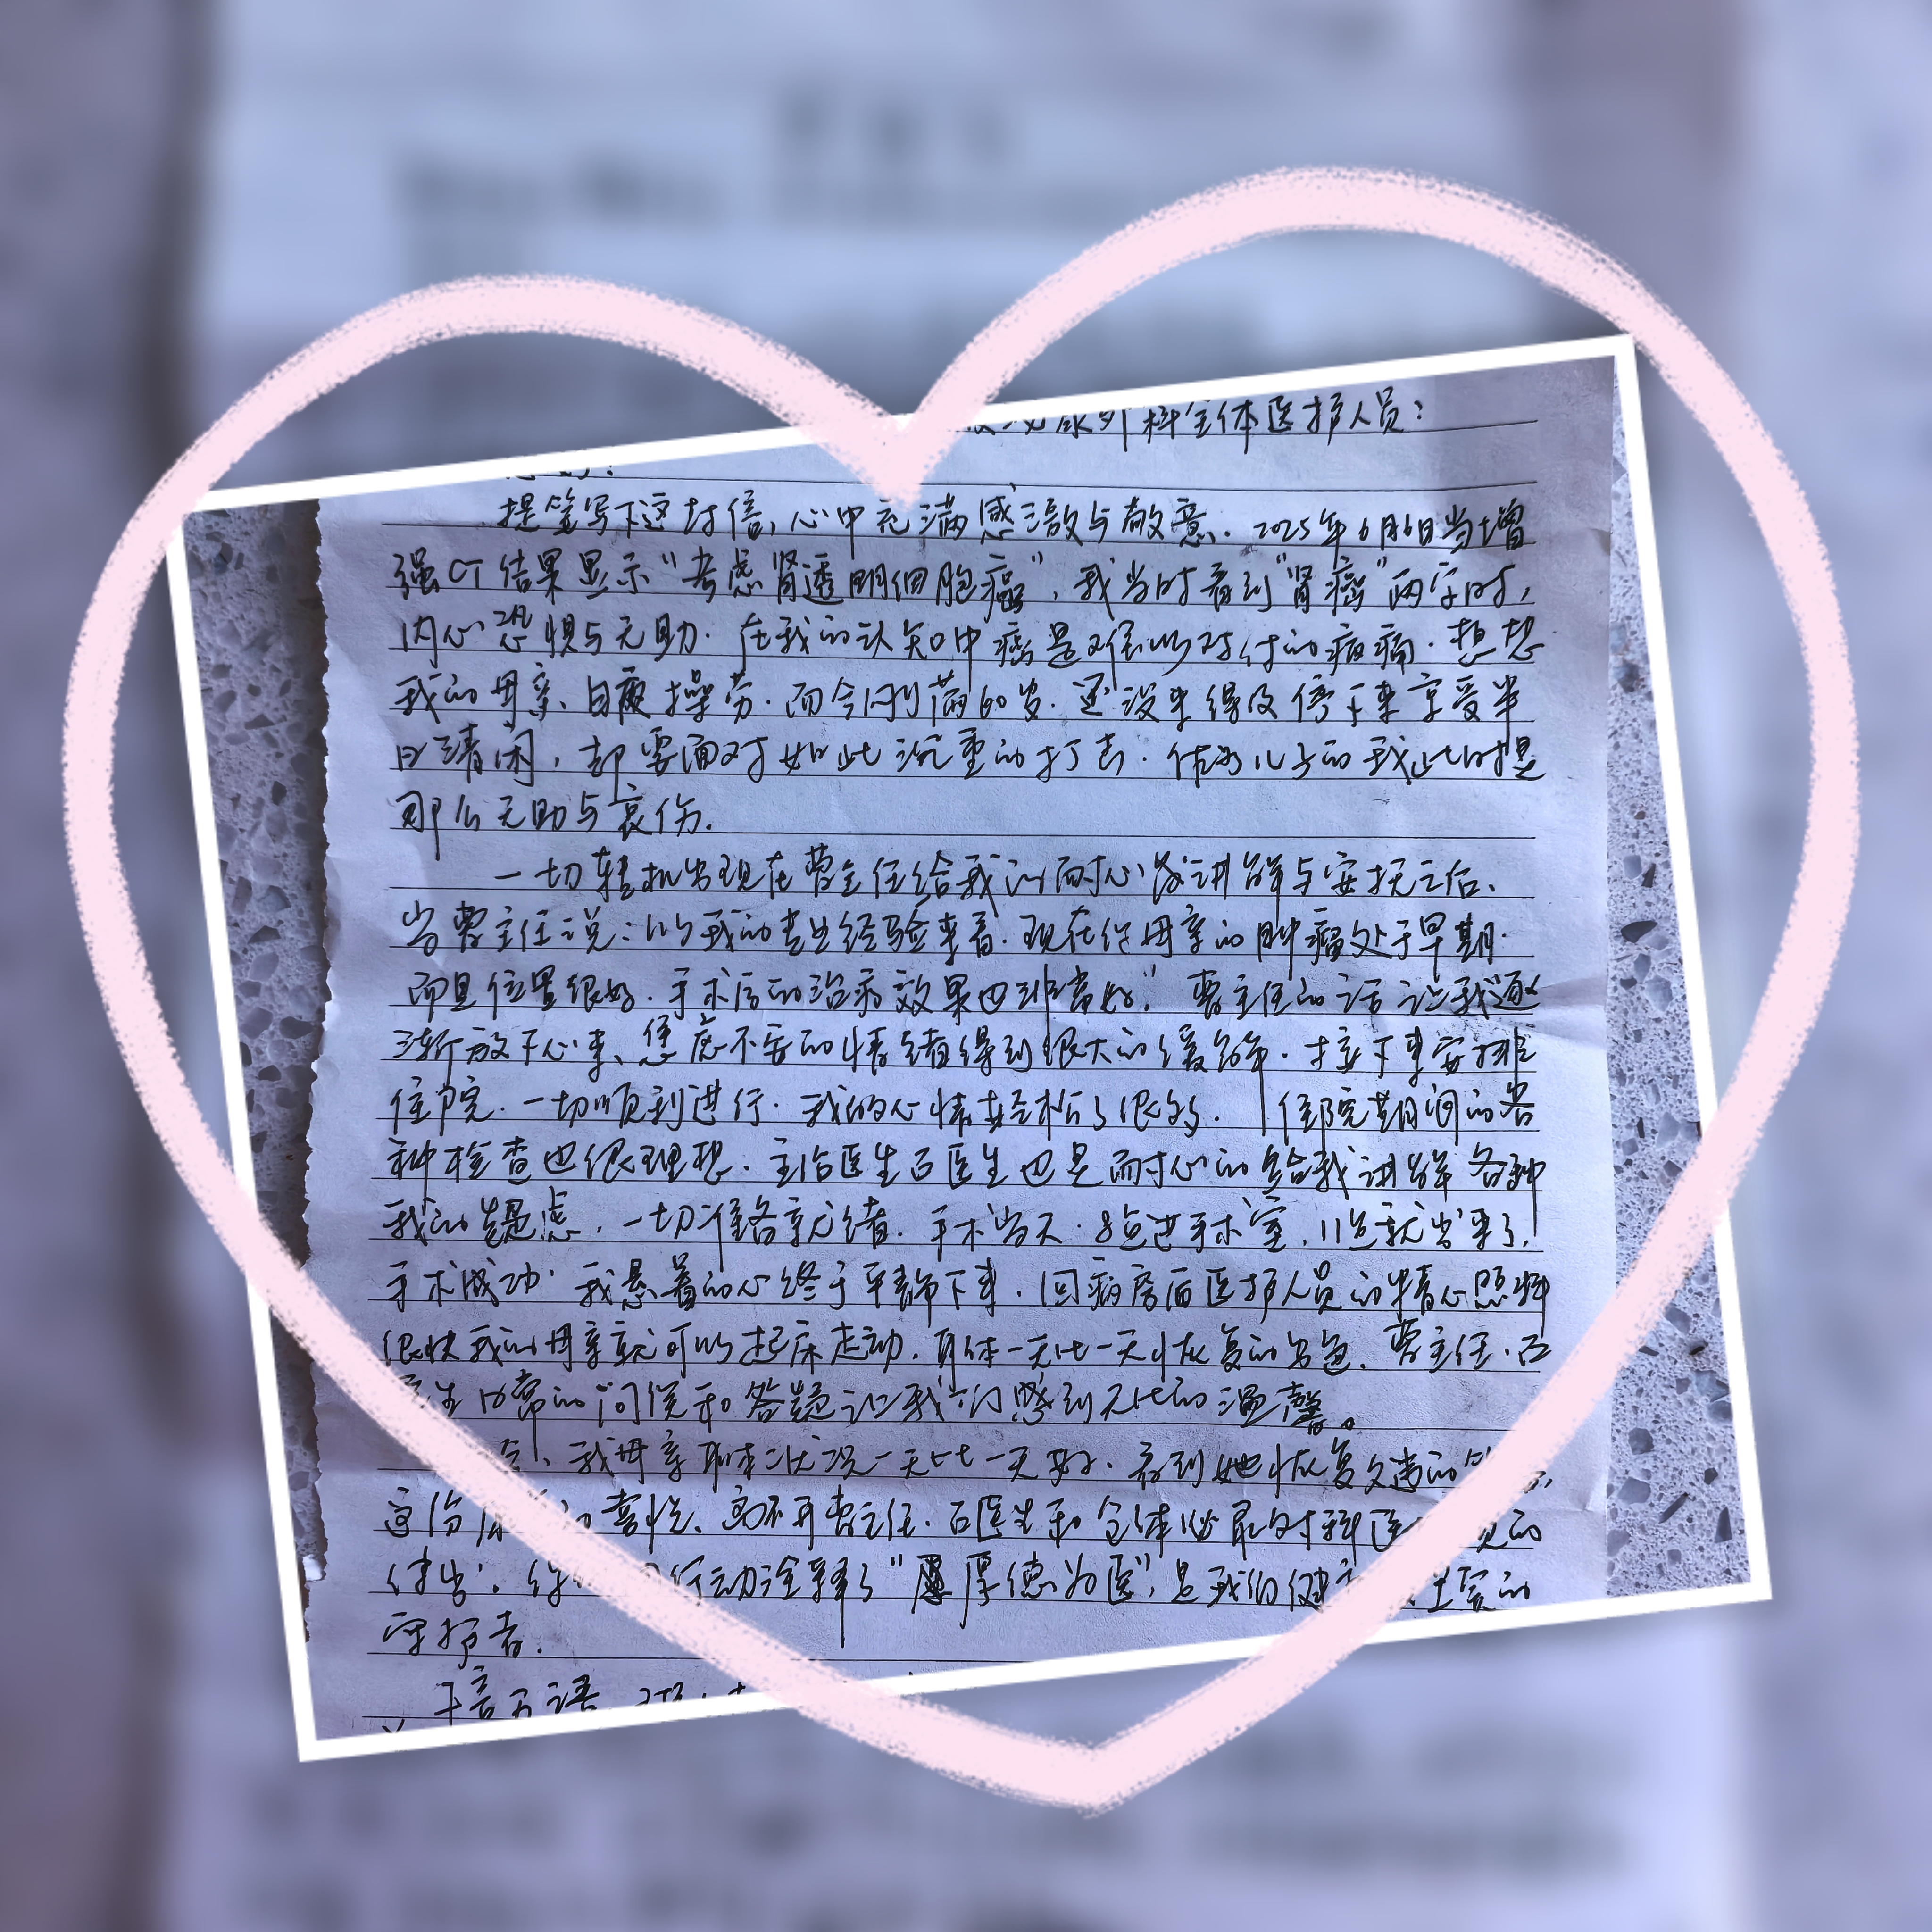 泌尿外科全体医护人员：
提笔写下这封信，心中充满感激与敬意．2025年6月6日当增
强CT结果显示“考虑肾透明细胞癌”，我当时看到“肾癌”两字时，
内心恐惧与无助．在我的认知中癌是难以对付的病痛．想想
我的母亲、日夜操劳．而今刚满60岁．还没来得及停下来享受半
日清闲，却要面对如此沉重的打击．作为儿子的我此时是
那么无助与哀伤．
一切转机出现在曹主任给我们耐心讲解与安抚之后、
当曹主任说：以我的专业经验来看．现在你母亲的肿瘤处于早期．
而且位置很好．手术后的治疗效果也非常好”曹主任的话让我逐
渐放下心来、焦虑不安的情绪得到很大的缓解．接下来安排
住院．一切顺利进行．我的心情轻松了很多．住院期间的各
种检查也很理想．主治医生石医生也是耐心的给我讲解各种
我的疑虑，一切准备就绪．手术当天．8点进手术室，11点就出来了，
手术成功．我悬着的心终于平静下来．回病房后医护人员的精心照料
很快我的母亲就可以起床走动．身体一天比一天恢复的出色．曹主任、石
医生日常的问候和答疑让我们感到无比的温馨。
我母亲身体状况一天比一天好．看到她恢复久违的笑
这份 喜悦、离不开曹主任．石医生和全体泌尿外科医 员的
付出．你 行动诠释了“厚德为医”，是我们健 坚实的
守护者．
千言万语